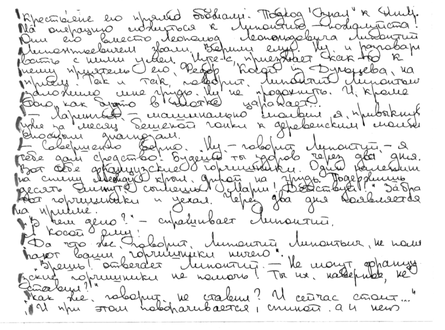 Крестьяне его прямо обожали. Подвод "Сумы" к нему.
На операцию ложиться к Липонтию — пожалуйста!
Они его вместо Леопольд Леопольдовича Липонтий
Липонтьевичем звали. Верили ему. Ну, и разговари-
вать с ними умел. Мгм-с, приезжает к нему как-то
к нему приятель его, Федор Косой из Дульцева, на
прием. Так и так, говорит, Липонтий Липонтьич,
заложило мне грудь. Ну, не продохнуть. И, кроме
того, как будто в глотке царапает...
— Ларингит, — машинально молвил я, привыкнув
уже за месяц бешеной гонки к деревенским молни-
еносным диагнозам.
— Совершенно верно. "Ну, — говорит Липонтий, — я
тебе дам средство. Будешь ты здоров через два дня.
Вот тебе французские горчишники. Один налепишь
на спину между крыл, другой — на грудь. Подержишь
десять минут, снимешь. Марш! Действуй!" Забрал
тот горчишники и уехал. Через два дня появляется
на приеме.
"В чем дело?" — спрашивает Липонтий.
А Косой ему:
"Да что ж, говорит, Липонтий Липонтьич, не помо-
гают ваши горчишники ничего".
"Врешь! — отвечает Липонтий. — Не могут француз-
ские горчишники не помочь! Ты их, наверное, не
ставил?"
"Как же, говорит, не ставил? И сейчас стоит..."
И при этом поворачивается спиной, а у него